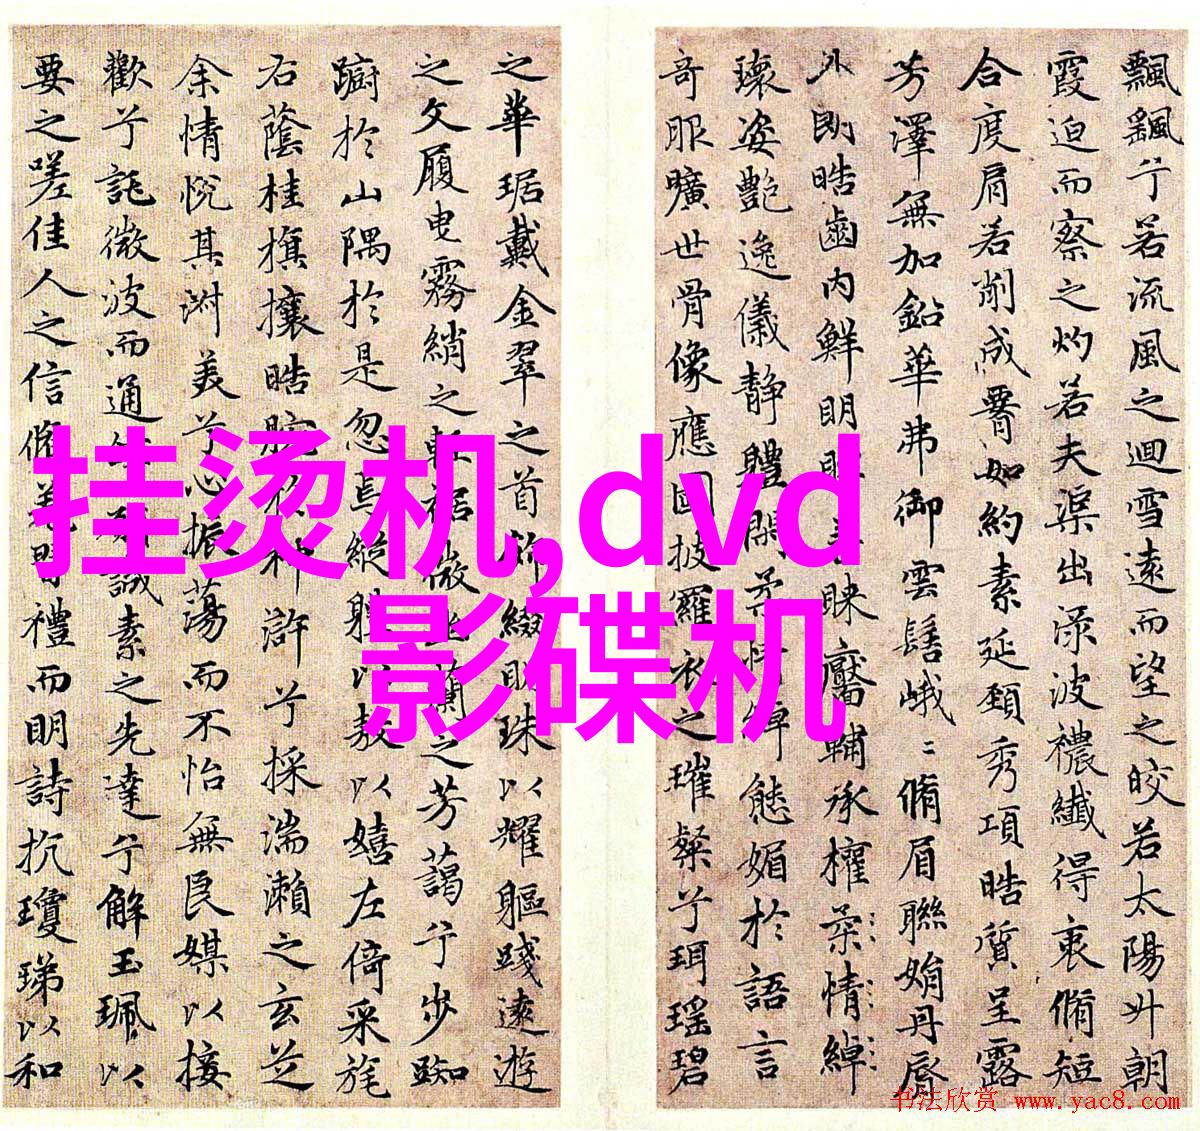 飄颻兮若流風之迴雪遠而望之皎若太陽升朝
霞迫而察之灼若夫渠出淥波襛纖得衷脩短
合度肩若削成署如約素延頚秀項皓質呈露
芳澤無加鉛華弗御雲髻峨〻脩眉聯娟丹脣
外朗皓齒内鮮明眸善睞靨輔承權柔情綽
瓌姿艷逸儀静體閑柔情綽態媚於語言
奇服曠世骨像應圖披羅衣之璀粲兮珥瑤碧
之華琚戴金翠之首飾綴明珠以耀軀踐遠遊
之文履曳霧綃之輕裾微幽蘭之芳藹兮步踟
躕於山隅於是忽焉縱躰以敖以嬉左倚采旄
右蔭桂旗攘皓腕於神滸兮採湍瀨之玄芝
余情悅其淑美兮心振蕩而不怡無良媒以接
歡兮託微波而通誠素之先達兮解玉珮以
要之嗟佳人之信脩羌習禮而明詩抗瓊珶以和
挂烫机,dvd
影碟机
书法欣赏 www.yac8.com